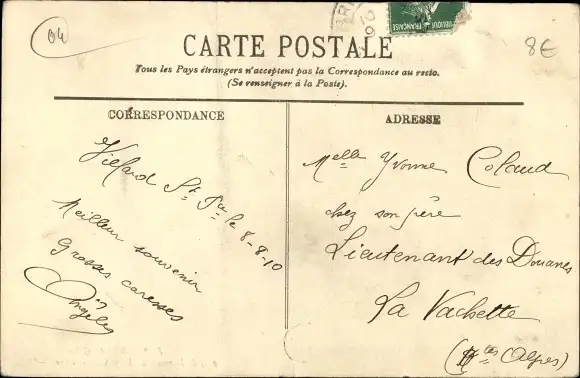 04
8€
CARTE POSTALE
Tous les Pays étrangers n'acceptent pas la Correspondance au recto.
(Se renseigner à la Poste).
CORRESPONDANCE
Villard St Pre le 8-8-10
Meilleur souvenir
Grosses caresses
Angèles
ADRESSE
Melle Yvonne Colaud
chez son père
Lieutenant des Douanes
La Vachette
(Htes Alpes)